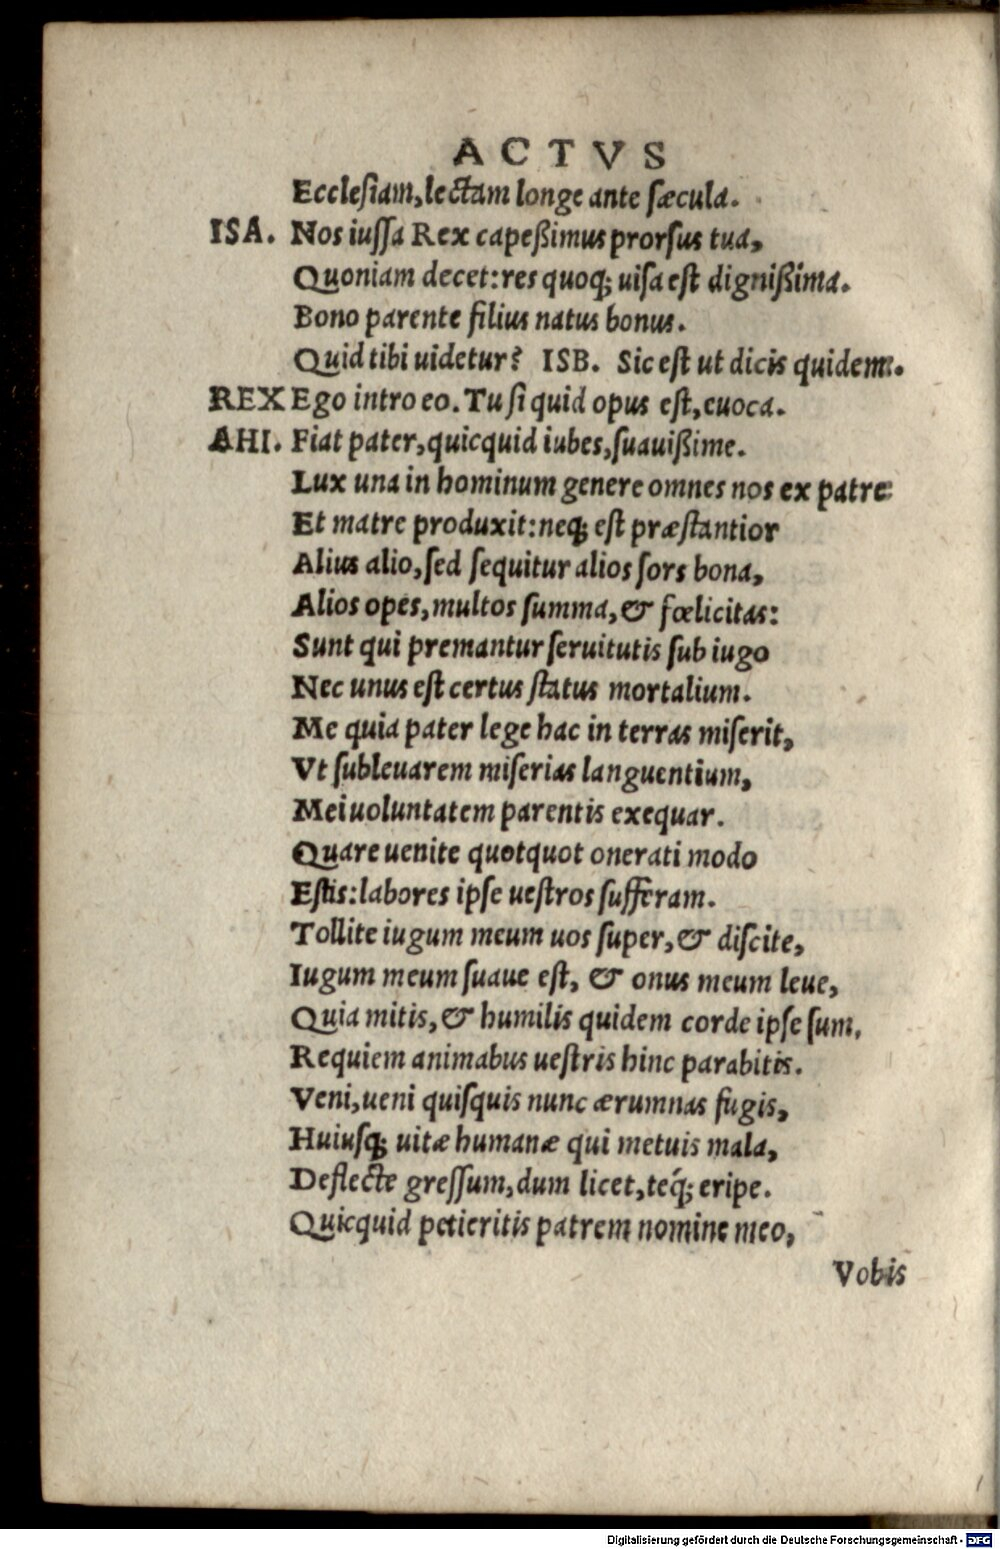 ACTVS
Eccleſiam, lectam longe ante ſæcula.
ISA. Nos iuſſa Rex capeßimus prorſus tua,
Quoniam decet: res quoq; uiſa eſt dignißima.
Bono parente filius natus bonus.
Quid tibi uidetur? ISB. Sic eſt ut dicis quidem.
REX Ego intro eo. Tu ſi quid opus eſt, euoca.
AHI. Fiat pater, quicquid iubes, ſuauißime.
Lux una in hominum genere omnes nos ex patre
Et matre produxit: neq; eſt præſtantior
Alius alio, ſed ſequitur alios ſors bona,
Alios opes, multos ſumma, & fœlicitas:
Sunt qui premantur ſeruitutis ſub iugo
Nec unus eſt certus ſtatus mortalium.
Me quia pater lege hac in terras miſerit,
Vt ſubleuarem miſerias languentium,
Mei uoluntatem parentis exequar.
Quare uenite quotquot onerati modo
Eſtis: labores ipſe ueſtros ſufferam.
Tollite iugum meum uos ſuper, & diſcite,
Iugum meum ſuaue eſt, & onus meum leue,
Quia mitis, & humilis quidem corde ipſe ſum,
Requiem animabus ueſtris hinc parabitis.
Veni, ueni quiſquis nunc ærumnas fugis,
Huiuſq; uitæ humanæ qui metuis mala,
Deflecte greſſum, dum licet, téq; eripe.
Quicquid petieritis patrem nomine meo,
Vobis
Digitalisierung gefördert durch die Deutsche Forschungsgemeinschaft - DFG